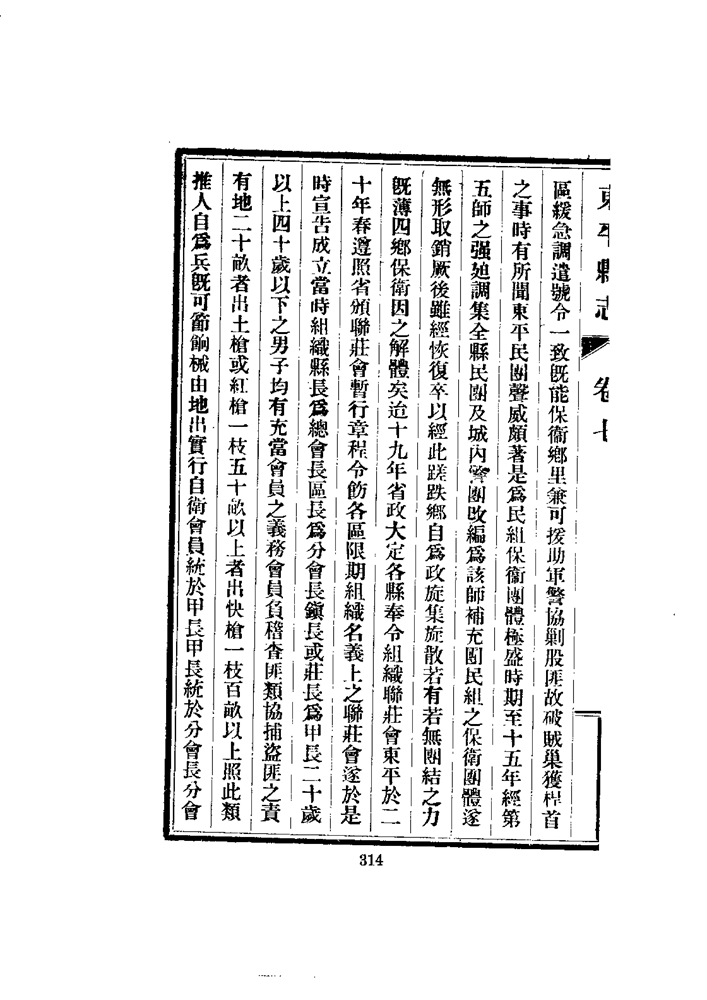 東平縣志 卷七
區緩急調遣號令一致旣能保衞鄉里兼可援助軍警協剿股匪故破賊巢獲桿首
之事時有所聞東平民團聲威頗著是爲民組保衞團體極盛時期至十五年經第
五師之强廹調集全縣民團及城內警團改編爲該師補充團民組之保衛團體遂
無形取銷厥後雖經恢復卒以經此蹉跌鄉自爲政旋集旋散若有若無團結之力
旣薄四鄉保衛因之解體矣迨十九年省政大定各縣奉令組織聯莊會東平於二
十年春遵照省頒聯莊會暫行章程令飭各區限期組織名義上之聯莊會遂於是
時宣告成立當時組織縣長爲總會長區長爲分會長鎭長或莊長爲甲長二十歲
以上四十歲以下之男子均有充當會員之義務會員負稽查匪類協捕盜匪之責
有地二十畝者出土槍或紅槍一枝五十畝以上者出快槍一枝百畝以上照此類
推人自爲兵旣可節餉械由地出實行自衛會員統於甲長甲長統於分會長分會
314